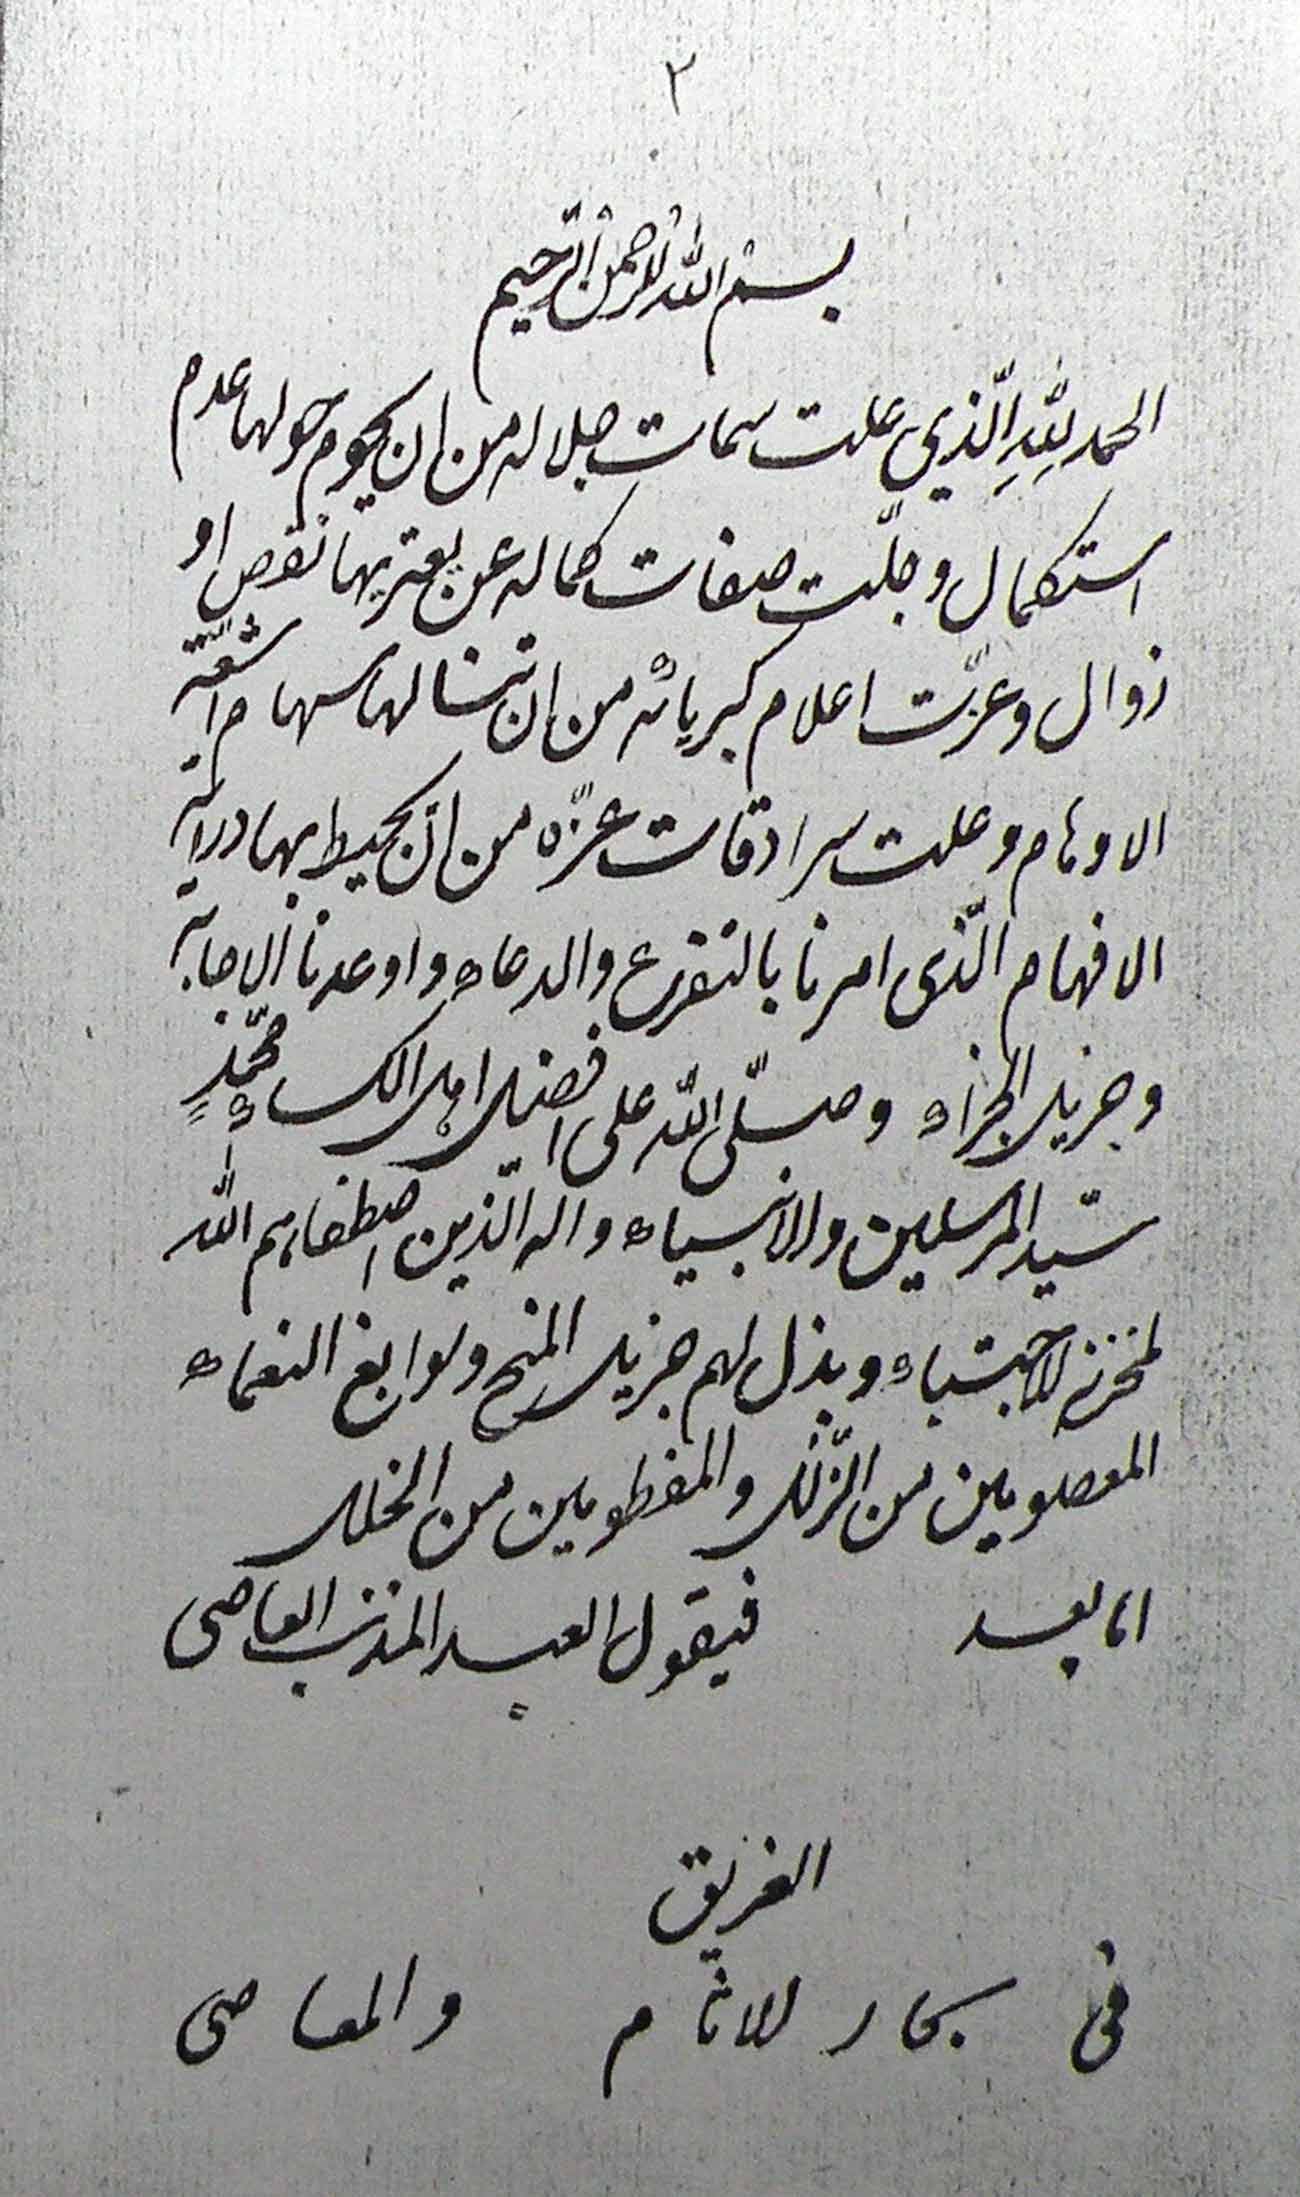 ٢
بسم الله الرحمن الرحیم
الحمد لِلّٰهِ الّذي علت سمات جلاله من ان یحوم حولها عدم
استکمال و جلّت صفات کماله عن یعتریها نقص او
زوال و عزّت اعلام کبریائه من ان تنالها سهام اشعّة
الاوهام و علت سرادقات عزّه من ان یحیط بها درایة
الافهام الّذی امرنا بالتضرع والدعاء و اوعدنا الاجابة
و جزیل الجزاء و صلّی الله علی افضل اهل الکساء محمّدٍ
سیّد المرسلین والانبیاء و اله الّذین اصطفاهم الله
لمخزن الاجتباء و بذل لهم جزیل المنح و سوابغ النعماء
المعصومین من الزّلل والمفطومین من الخلل
اما بعد فیقول العبد المذنب العاصی
الغریق
فی بحار الاثام والمعاصی